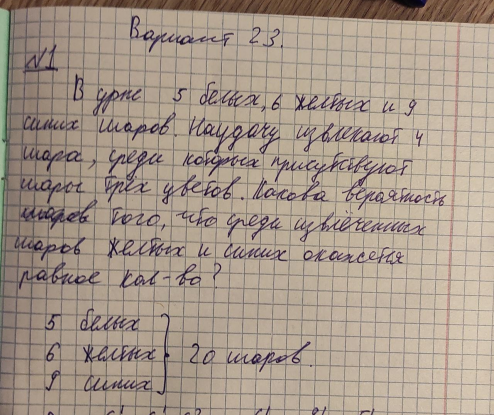 Вариант 23.
№1
В урне 5 белых, 6 желтых и 9
синих шаров. Наудачу извлекают 4
шара, среди которых присутствуют
шары трёх цветов. Какова вероятность
шаров того, что среди извлеченных
шаров желтых и синих окажется
равное кол-во?
5 белых
6 желтых 20 шаров.
9 синих